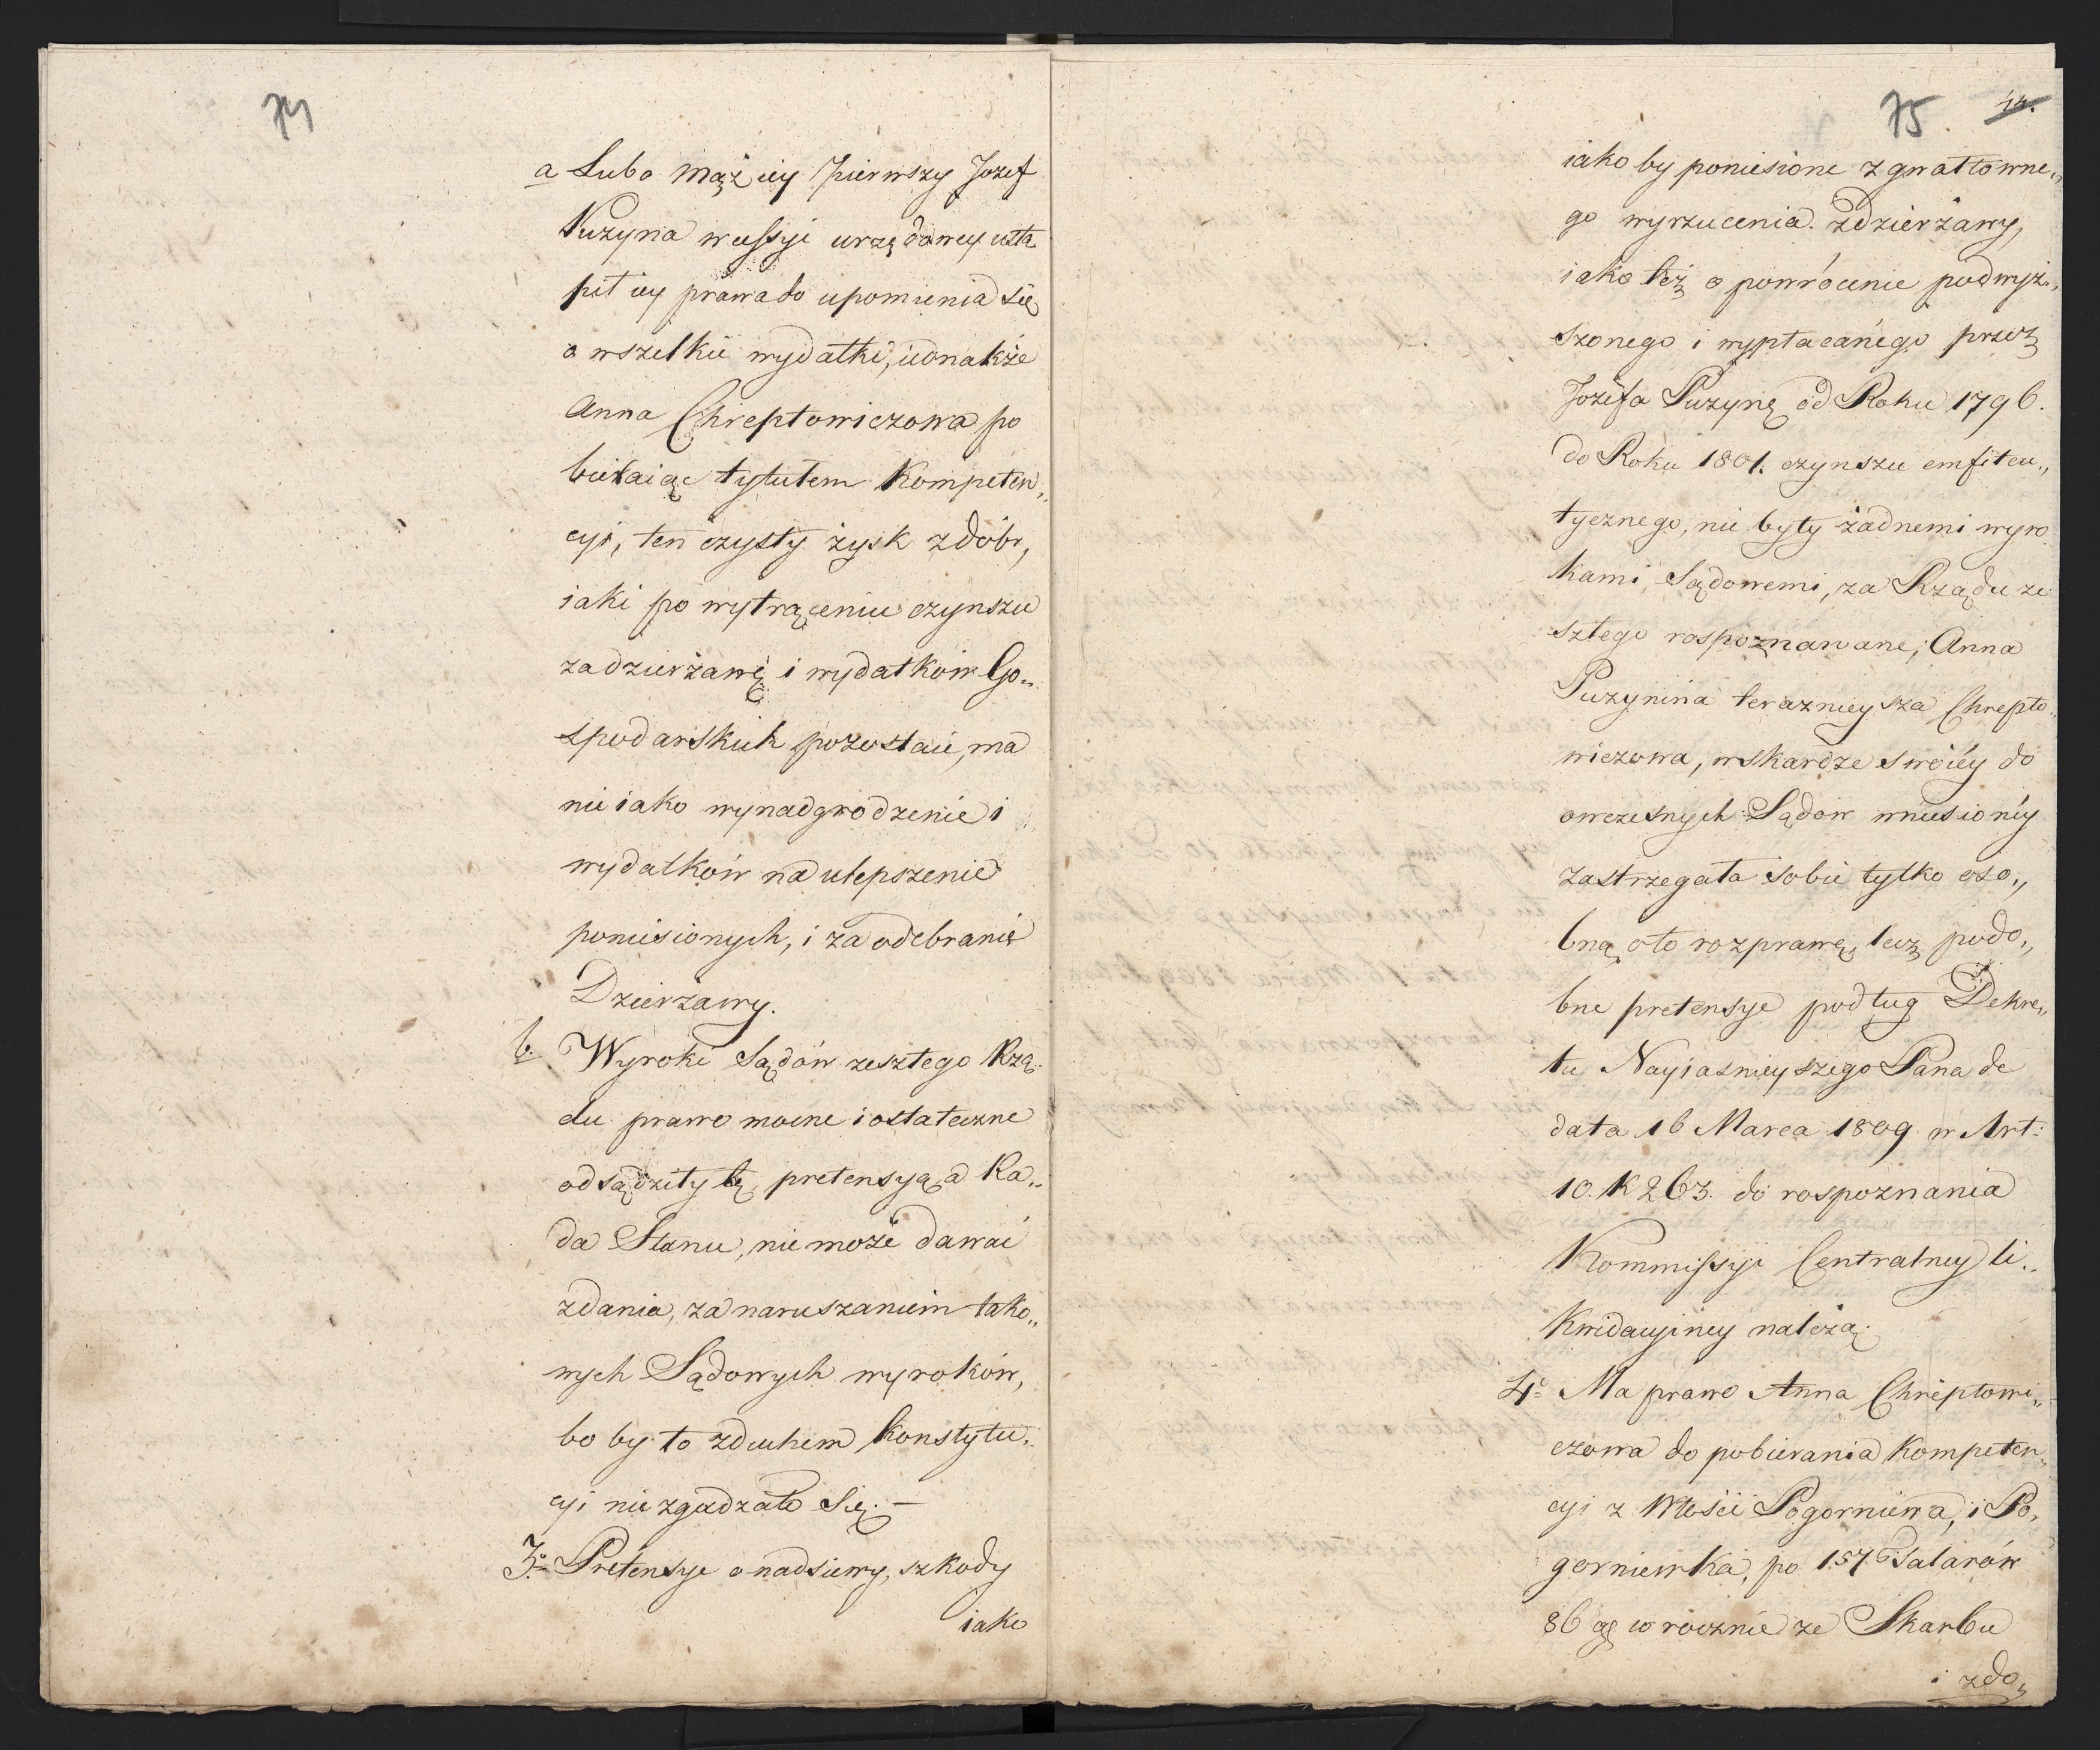 74
a Lubo mąż iey pierwszy Jozef
Puzyna w cessyi urzędowey ustą
pił iey prawa do upomienia się
o wszelkie wydatki, iednakże
Anna Chreptowiczowa po
bieraiąc tytułem kompeten„
cyi, ten czysty zysk z dóbr,
iaki po wytrąceniu czynszu
za dzierżawę i wydatków Go„
spodarskich pozostaie, ma
nie iako wynadgrodzenie i
wydatków na ulepszenie
poniesionych, i za odebranie
Dzierżawy.
b. Wyroki Sądów zeszłego Rzą„
du prawomocne i ostateczne
odsądziły tę pretensyą, a Ra„
da Stanu, nie może dawać
zdania, za naruszaniem tako„
wych Sądowych wyroków,
bo by to z duchem Konstytu„
cyi nie zgadzało się. —
3.º Pretensye o nadsiewy, szkody
iako
75. 44.
iako by poniesione z gwałtowne„
go wyrzucenia z dzierżawy,
iako też o powrócenie podwyż„
szonego i wypłacanego przez
Jozefa Puzynę od Roku 1796.
do Roku 1801. czynszu emfiteu„
tycznego, nie były żadnemi wyro
kami Sądowemi, za Rządu ze
szłego rospoznawane; Anna
Puzynina terazniey sza Chrepto„
wiczowa, w skardze swoiéy do
owczesnych Sądów wniesionéy
zastrzegała sobie tylko oso„
bną oto rozprawę, lecz podo„
bne pretensye podług Dekre„
tu Nayiaśnieyszego Pana de
data 16 Marca 1809 w Art:
10. K 263. do rospoznania
Kommissyi Centralney li„
kwidacyiney należą.
4º Ma prawo Anna Chreptowi„
czowa do pobierania Kompeten„
cyi z Włości Pogorniewa, i Po„
gorniewka, po 157 Talarów
86 gg co rocznie ze Skarbu
i zdo„